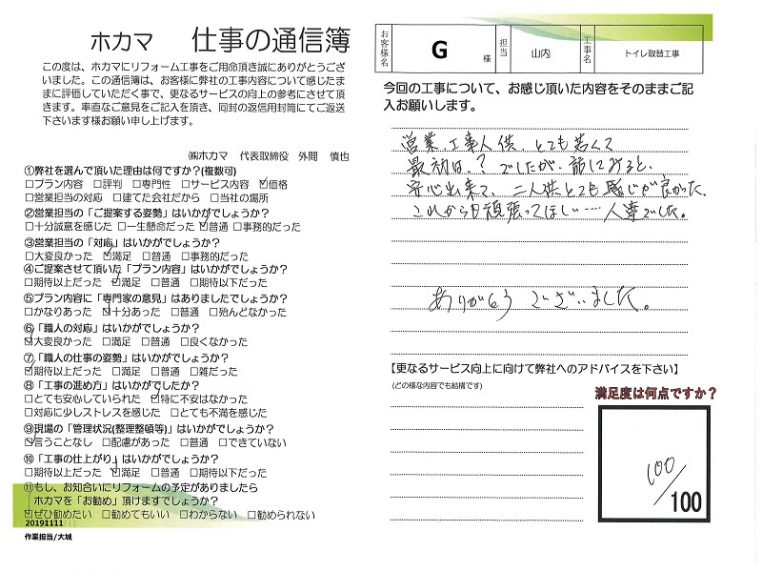 ホカマ 仕事の通信簿
この度は、ホカマにリフォーム工事をご用命頂き誠にありがとうござ
いました。この通信簿は、お客様に弊社の工事内容について感じたま
まに評価していただく事で、更なるサービスの向上の参考にさせて頂
きます。率直なご意見をご記入を頂き、同封の返信用封筒にてご返送
下さいます様お願い申し上げます。
㈱ホカマ 代表取締役 外間 慎也
①弊社を選んで頂いた理由は何ですか?(複数可)
□プラン内容 □評判 □専門性 □サービス内容 ☑価格
□営業担当の対応 □建てた会社だから □当社の場所
②営業担当の「ご提案する姿勢」はいかがでしょうか?
□十分誠意を感じた □一生懸命だった ☑普通 □事務的だった
③営業担当の「対応」はいかがでしょうか?
□大変良かった ☑満足 □普通 □事務的だった
④ご提案させて頂いた「プラン内容」はいかがでしょうか?
□期待以上だった ☑満足 □普通 □期待以下だった
⑤プラン内容に「専門家の意見」はありましたでしょうか?
□かなりあった ☑十分あった □普通 □殆んどなかった
⑥「職人の対応」はいかがでしょうか?
☑大変良かった □満足 □普通 □良くなかった
⑦「職人の仕事の姿勢」はいかがでしょうか?
☑期待以上だった □満足 □普通 □雑だった
⑧「工事の進め方」はいかがでしたか?
□とても安心していられた ☑特に不安はなかった
□対応に少しストレスを感じた □とても不満を感じた
⑨現場の「管理状況(整理整頓等)」はいかがでしょうか?
☑言うことなし □配慮があった □普通 □できていない
⑩「工事の仕上がり」はいかがでしょうか?
□期待以上だった ☑満足 □普通 □期待以下だった
⑪もし、お知合いにリフォームの予定がありましたら
ホカマを「お勧め」頂けますでしょうか?
☑ぜひ勧めたい □勧めてもいい □わからない □勧められない
20191111
作業担当/大城
お客様名 G 様 担当 山内 工事名 トイレ取替工事
今回の工事について、お感じ頂いた内容をそのままご記
入お願いします。
営業、工事人供、とても若くて
最初は、?でしたが、話してみると、
安心出来て、二人供とても感じが良かった。
これからも頑張ってほしい……人達でした。
ありがとうございました。
【更なるサービス向上に向けて弊社へのアドバイスを下さい】
(どの様な内容でも結構です)
満足度は何点ですか?
100/100